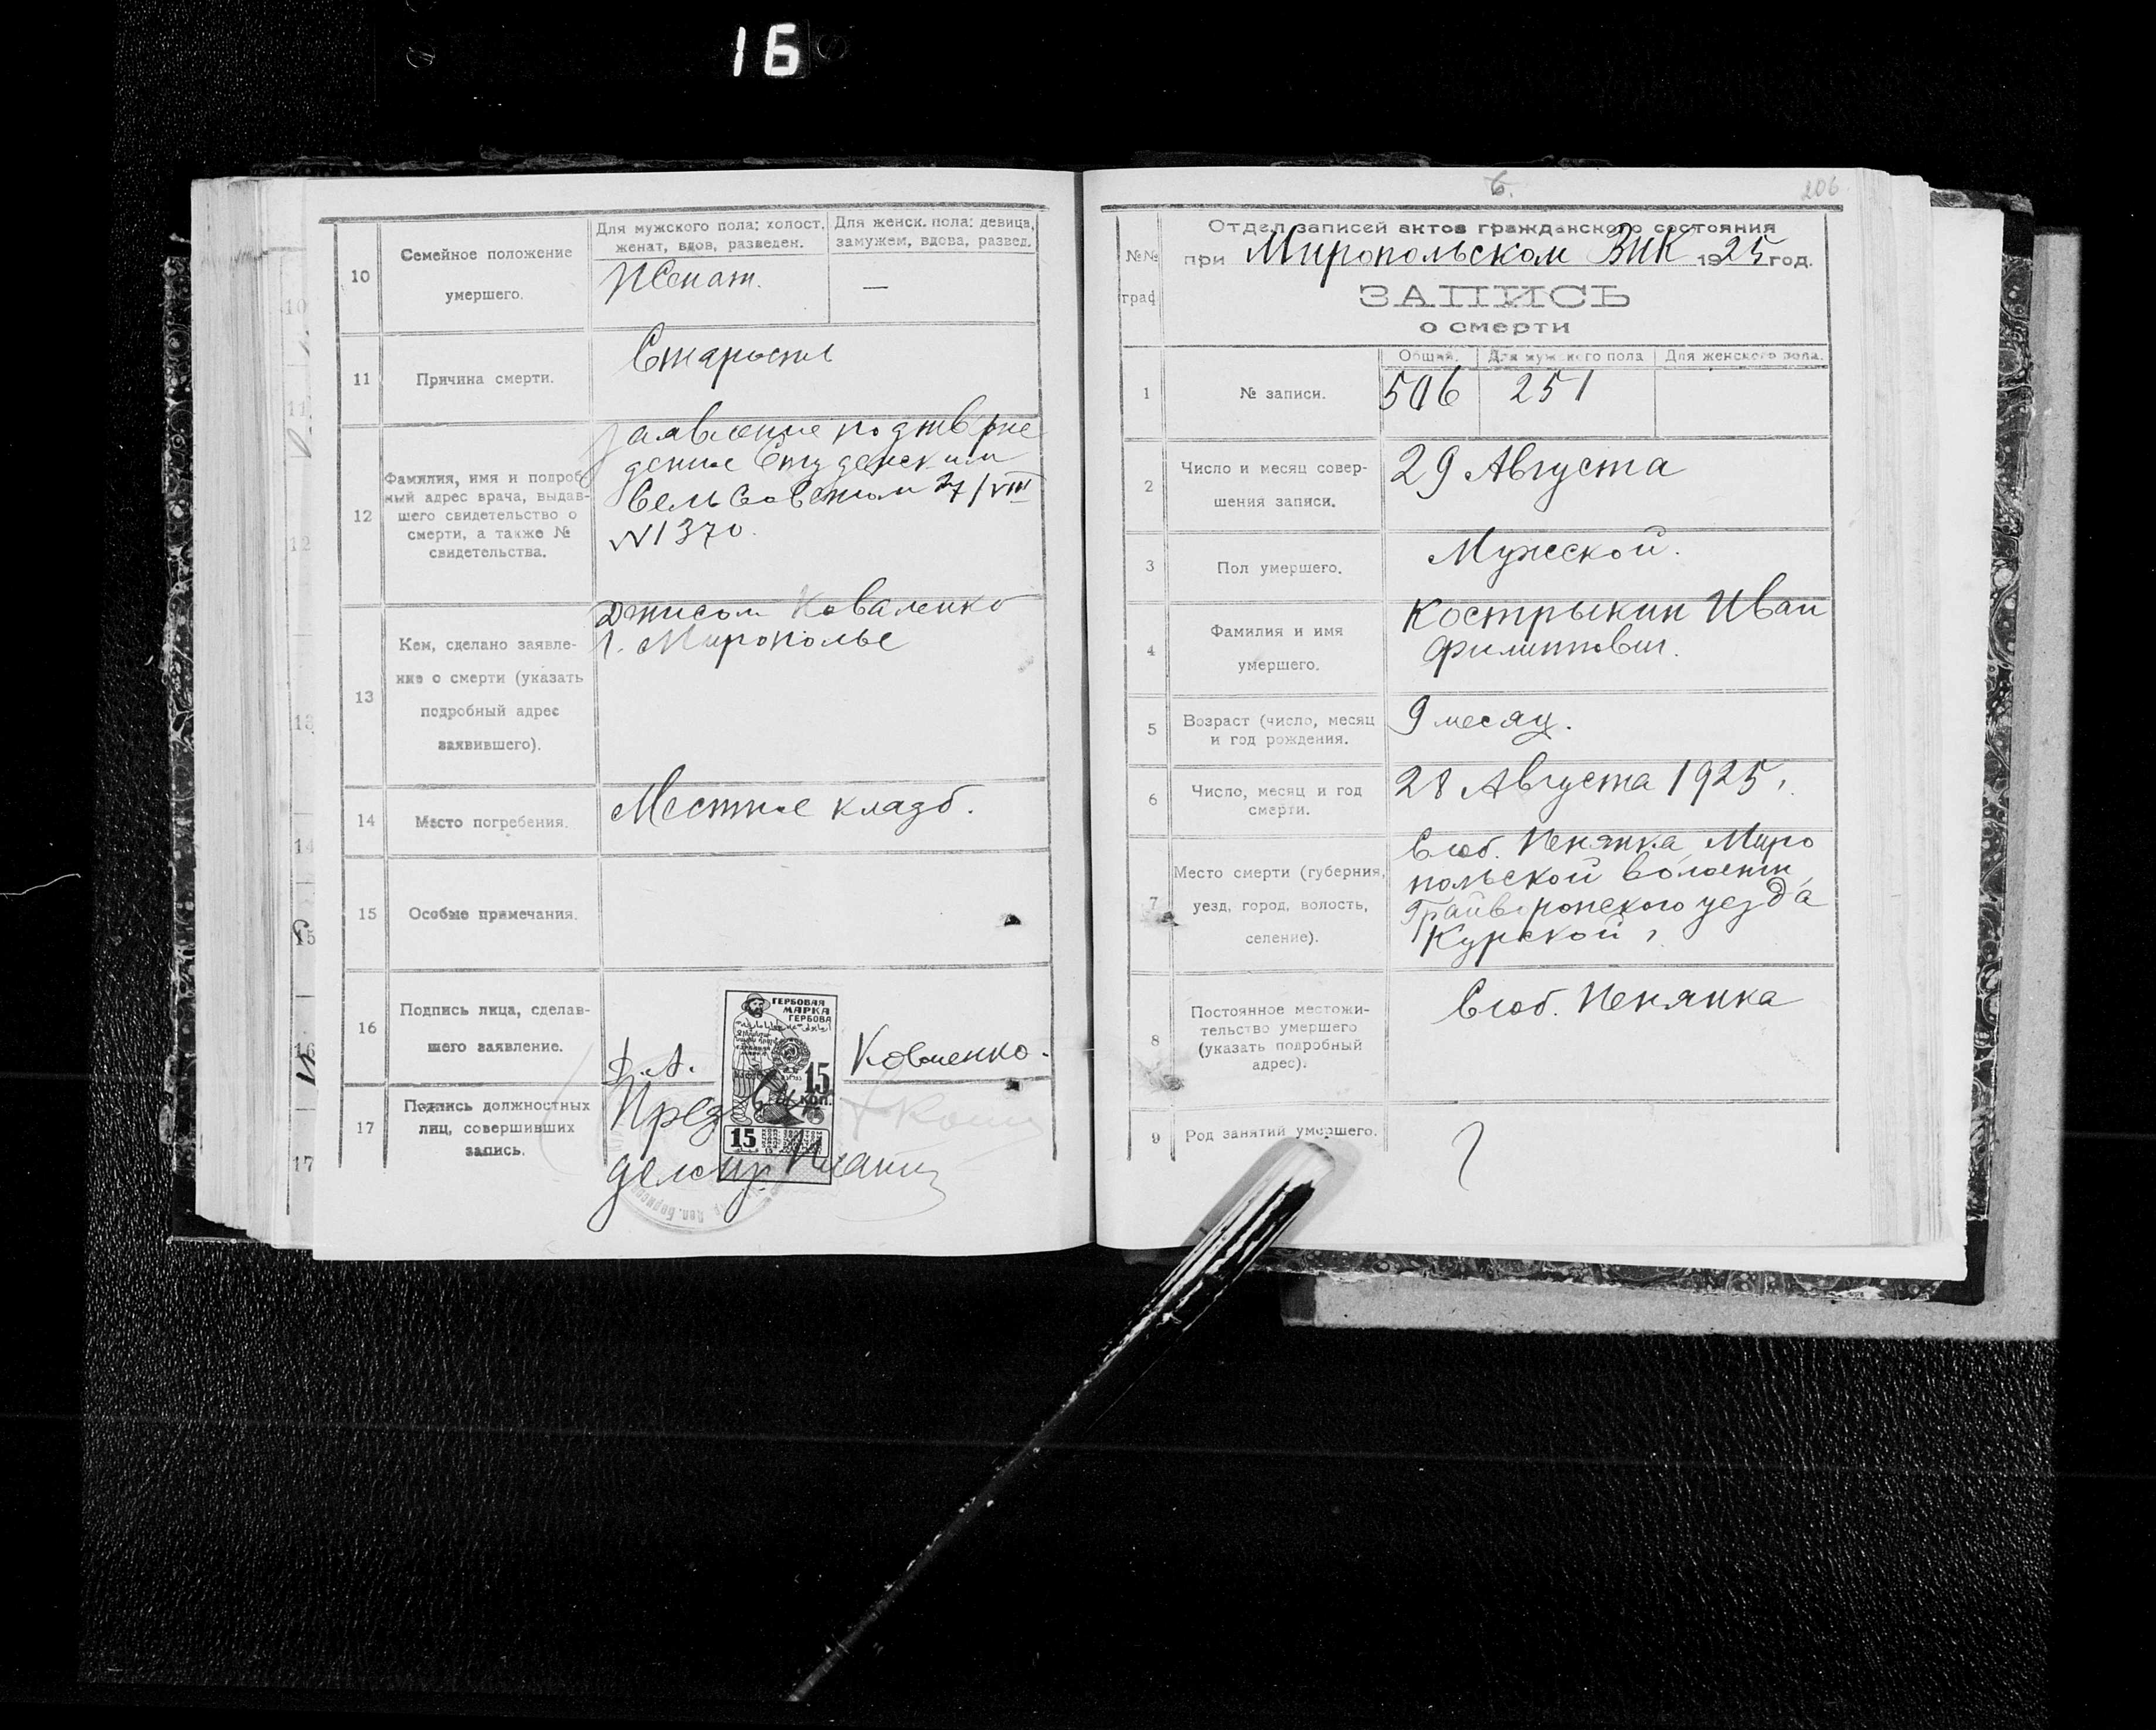 16
10
Семейное положение
умершего.
Для мужского пола: холост,
женат, вдов, разведен.
Для женск. пола: девица,
замужем, вдова, развед.
Женат.
—
11
Причина смерти.
Старость
12
Фамилия, имя и подроб-
ный адрес врача, выдав-
шего свидетельство о
смерти, а также №
свидетельства.
Заявление подтверж
дение
Сельсоветом 27/VIII
№1370.
13
Кем, сделано заявле-
ние о смерти (указать
подробный адрес
заявившего).
Коваленко
г. Мирополье
14
Место погребения.
Местное кладб.
15
Особые примечания.
16
Подпись лица, сделав-
шего заявление.
Коваленко.
ГЕРБОВАЯ
МАРКА
ГЕРБОВА
15
КОП.
15
17
Подпись должностных
лиц, совершивших
запись.
10
11
12
13
14
15
16
17
6.
206
№№
граф
Отдел записей актов гражданского состояния
при Миропольском ВИК 1925 год.
ЗАПИСЬ
о смерти
1
№ записи.
Общий.
Для мужского пола
Для женского пола.
506
251
2
Число и месяц совер-
шения записи.
29 Августа
3
Пол умершего.
Мужеской.
4
Фамилия и имя
умершего.
Кострыкин Иван
Филиппович.
5
Возраст (число, месяц
и год рождения.
9 месяц.
6
Число, месяц и год
смерти.
28 Августа 1925 г.
7
Место смерти (губерния,
уезд, город, волость,
селение).
Слоб. Пенянка, Миро
польской волости,
Грайворонского уезда
Курской г.
8
Постоянное местожи-
тельство умершего
(указать подробный
адрес).
Слоб. Пенянка
9
Род занятий умершего.